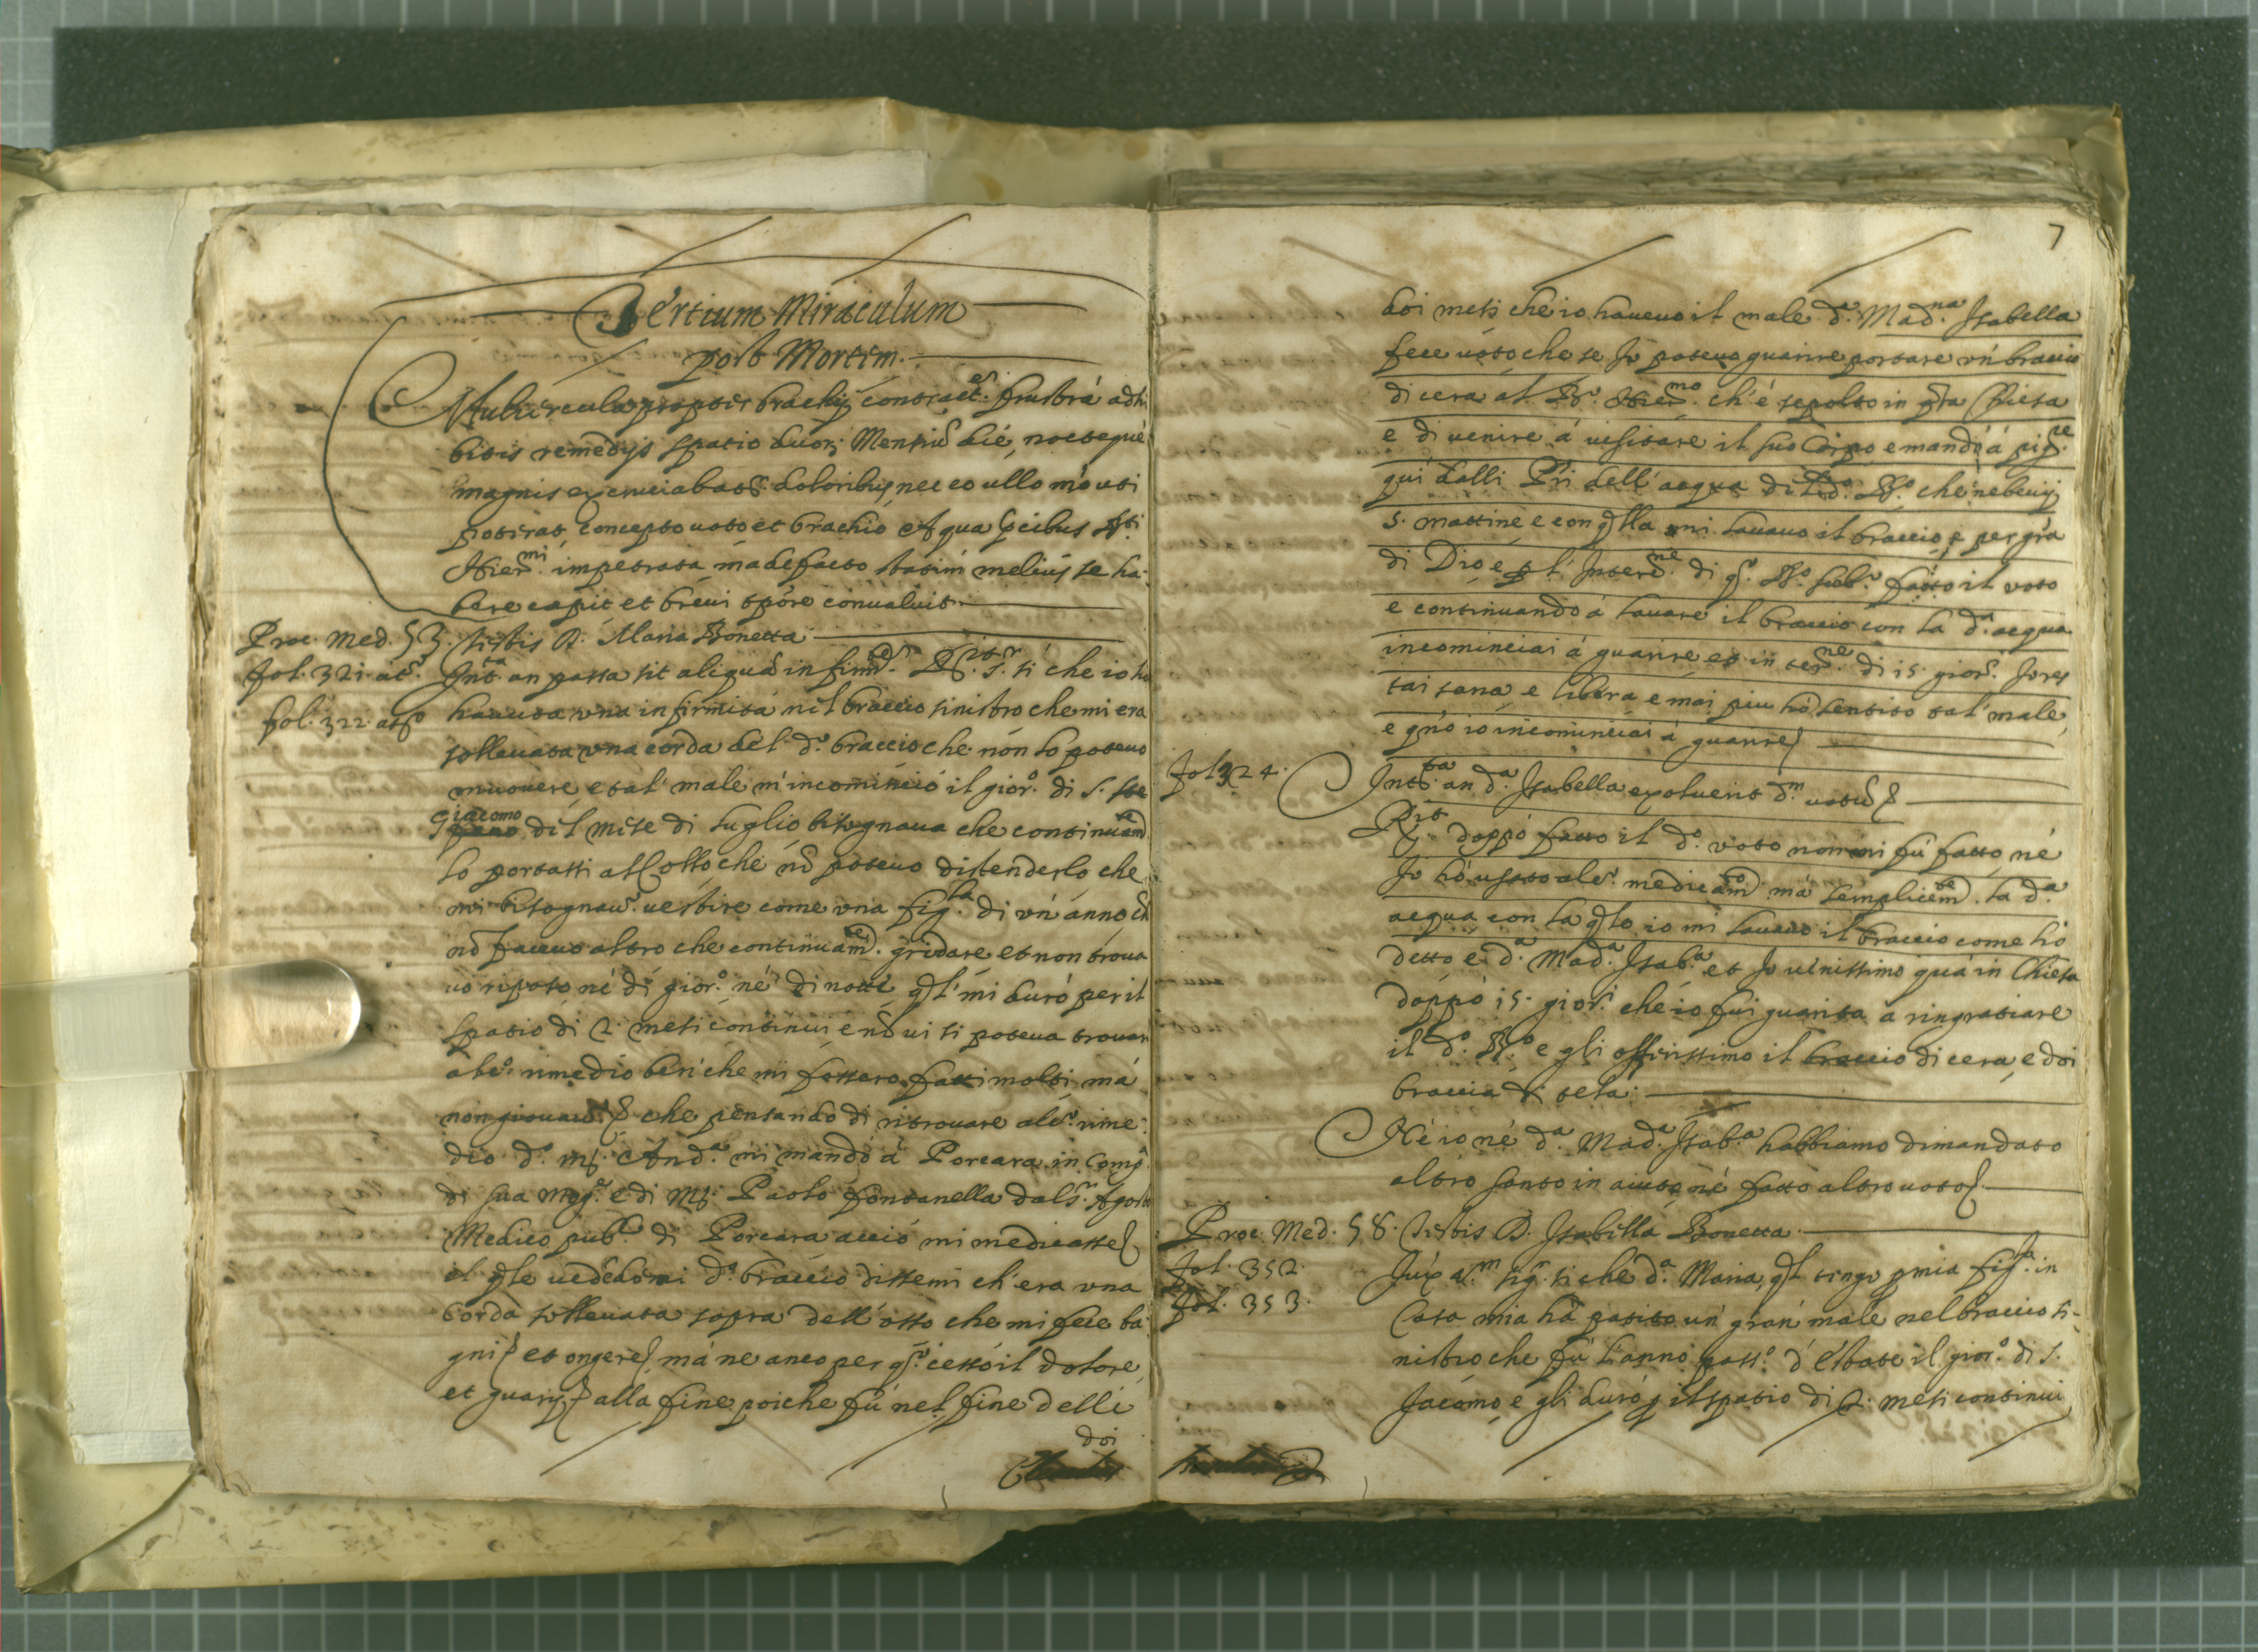 Tertium Miraculum
post Mortem.
Muliercula propter brachij contract.es frustrà adhi
bitis remedijs spatio duor. Mensiũ dié, noctequé
magnis exenuciabatr. doloribus, nec eo ullo mõ uti
poterat, concepto uoto et brachio Aqua pcibus Bti
Hier.mi impetrata madefacto statim meliús se ha:
bere cæpit et breui tpore conualuit.
Proc. Med. 53. testis D. Maria Bonetta
fol. 321. at.o Int.ta an passa sit aliquã infirmd. R.it S.r si che io ho
fol. 322. at.o hauuta una infirmita nel braccio sinistro che mi era
solleuata una corda del d.o braccio che non lo poteuo
muouere, e tal' male m'incominciò il gior.o di S. Ste
Giacomo
fano del Mese di luglio bisognaua che continuam.te
lo portassi al Collo che nõ poteuo distenderlo che
mi bisognau.a uestire come una fig.la di un' anno ch
nõ faceuo altro che continuam.te gridare et non troua
uo riposo né di gior.o né di notte qal' mi durò per il
spatio di 2. mesi continui e nõ ui si poteua trouar
alt.o rimedio ben' che mi fossero fatti molti, má
non giouau.o che pensando di ritrouare alt.o rime:
dio d.o ms. And.a mi mandò á Porcara in Comp.a
di sua mog.e e di ms. Paolo fontanella dal S.r Agosto
Medico pub.co di Porcara acciò mi medicasse
il qle uedẽdomi d.o braccio dissemi ch'era una
Corda solleuata sopra dell'osso che mi fece ba
gni et ongere, má ne anco per qs.o cessò il dolore,
et guarij alla fine poiche fú nel fine delli
doi
7
doi mesi che io haueuo il male d.a Mad.na Isabella
fece uoto che se Io poteuo guarire portare un' braccio
di cera al B. Hier.mo ch'é sepolto in qta Chiesa
e di uenire á uisitare il suo Corpo e mandò á pig.re
qui dalli Pri dell'acqua di d.o B.o che ne beuij
5. mattine e con qlla mi lauauo il braccio, e per gra
di Dio e p l'Interc.ne di qs.o B.o sub.o fatto il voto
e continuando á lauare il braccio con la d.a acqua
incominciai á guarire et in ter.ne di 15. gior.i Io res
tai sana e libera e mai piu hò sentito tal' male,
e qñdo io incominciai á guarire
fol. 324. Int.ta an d.a Isabella exoluerit d.m uotũ
R.it
S.r doppò fatto il d.o voto non mi fú fatto, né
Io hò usato alt.o medicam.to má semplicem.te la d.a
acqua con la qle io mi lauauo il braccio come hó
detto e d.a Mad.a Isab.a et Io uenissimo quá in Chiesa
doppò 15. gior.i che io fui guarita á ringratiare
il d.o B.o e gli offerissimo il braccio di cera, e doi
braccia di tela:
Né io né d.a Mad.a Isab.a habbiamo dimandato
altro santo in aiuto né fatto altro uoto
Proc. Med. 58. testis D. Isabella Bonetta
fol. 352. Iux a.m sig.r si che d.a Maria, qal tengo p mia fig.la in
fol. 353. Casa mia há patito un' gran' male nel braccio si-
nistro che fú l'anno pass.o d'Estate il gior.o di S.
Jacomo, e gli durò p il spatio di 2. mesi continui